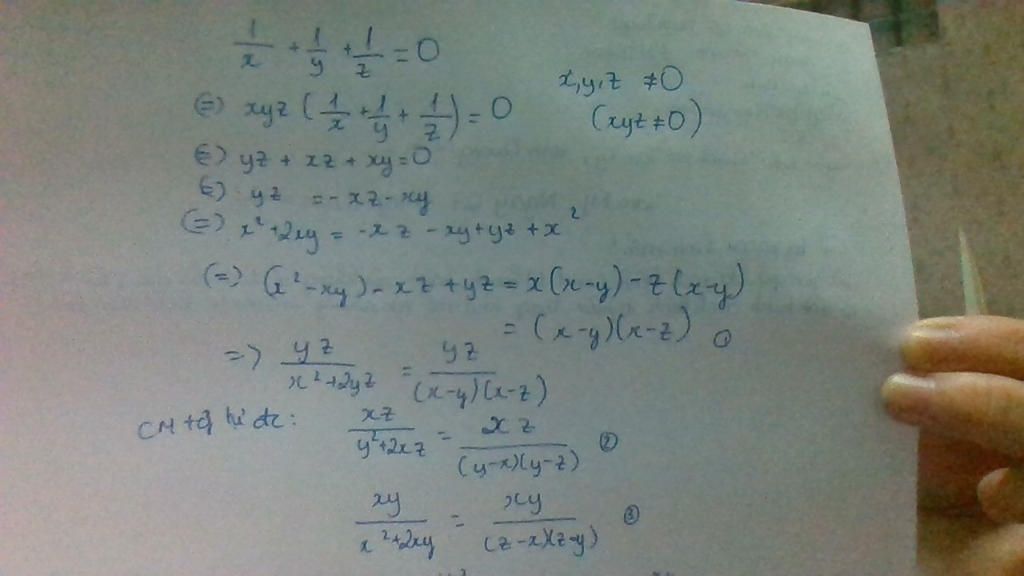 1/x + 1/y + 1/z = 0
x,y,z ≠ 0
(=) xyz (1/x + 1/y + 1/z) = 0
(xyz ≠ 0)
(=) yz + xz + xy = 0
(=) yz = - xz - xy
(=) x² + 2xy = -xz - xy + yz + x²
(=) (x² - xy) - xz + yz = x(x-y) - z(x-y)
= (x-y)(x-z) ①
=> yz/(x²+2yz) = yz/((x-y)(x-z))
CM tg : xz/(y²+2xz) = xz/((y-x)(y-z)) ②
xy/(x²+2xy) = xy/((z-x)(z-y)) ③